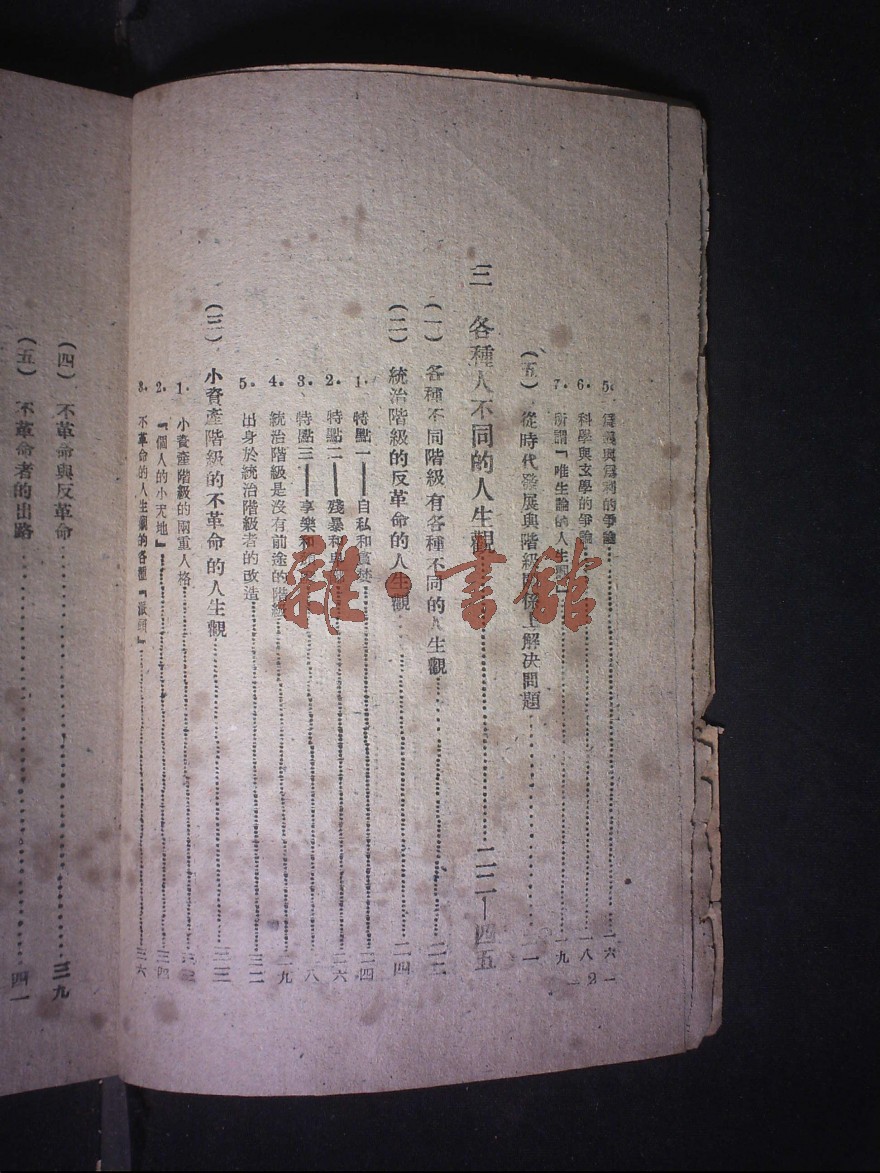 5. 義與爲利的爭論……一六
6. 科學與玄學的爭論……一八
7. 所謂『唯生論的人生觀』……一九
(五) 從時代發展與階級關係上解決問題……二一
三 各種人不同的人生觀……二二—四五
(一) 各種不同階級有各種不同的人生觀……二二
(二) 統治階級的反革命的人生觀……二四
1. 特點一——自私和……二四
2. 特點二——殘暴和……二六
3. 特點三——享樂和……八
4. 統治階級是沒有前途的階級……九
5. 出身於統治階級者的改造……三二
(三) 小資產階級的不革命的人生觀……三三
1. 小資產階級的兩重人格……三三
2. 『個人的小天地』……三四
3. 不革命的人生觀的各種『』……三六
(四) 不革命與反革命……三九
(五) 不革命者的出路……四一
— 2 —
雜·書館